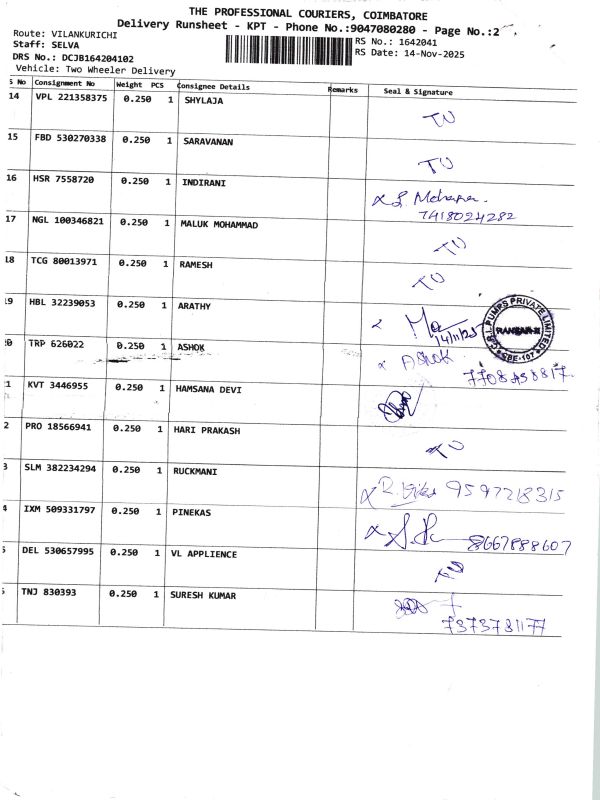 THE PROFESSIONAL COURIERS, COIMBATORE
Delivery Runsheet - KPT - Phone No.:9047080280 - Page No.:2
Route: VILANKURICHI
RS No.: 1642041
Staff: SELVA
RS Date: 14-Nov-2025
DRS No.: DCJB164204102
Vehicle: Two Wheeler Delivery
S No Consignment No Weight PCS Consignee Details Remarks Seal & Signature
14 VPL 221358375 0.250 1 SHYLAJA TU
15 FBD 530270338 0.250 1 SARAVANAN TU
16 HSR 7558720 0.250 1 INDIRANI
7418024282
17 NGL 100346821 0.250 1 MALUK MOHAMMAD TU
18 TCG 80013971 0.250 1 RAMESH TU
19 HBL 32239053 0.250 1 ARATHY
14/11/25
PUMPS PRIVATE LIMITED
CBE-107
20 TRP 626022 0.250 1 ASHOK Ashok
1 KVT 3446955 0.250 1 HAMSANA DEVI
2 PRO 18566941 0.250 1 HARI PRAKASH TU
3 SLM 382234294 0.250 1 RUCKMANI 9597218315
4 IXM 509331797 0.250 1 PINEKAS 8667888607
5 DEL 530657995 0.250 1 VL APPLIENCE TU
TNJ 830393 0.250 1 SURESH KUMAR
7373731177